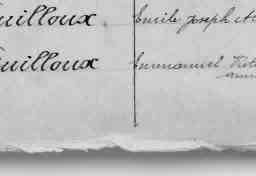 uilloux Emile Joseph
uilloux Emmanuel